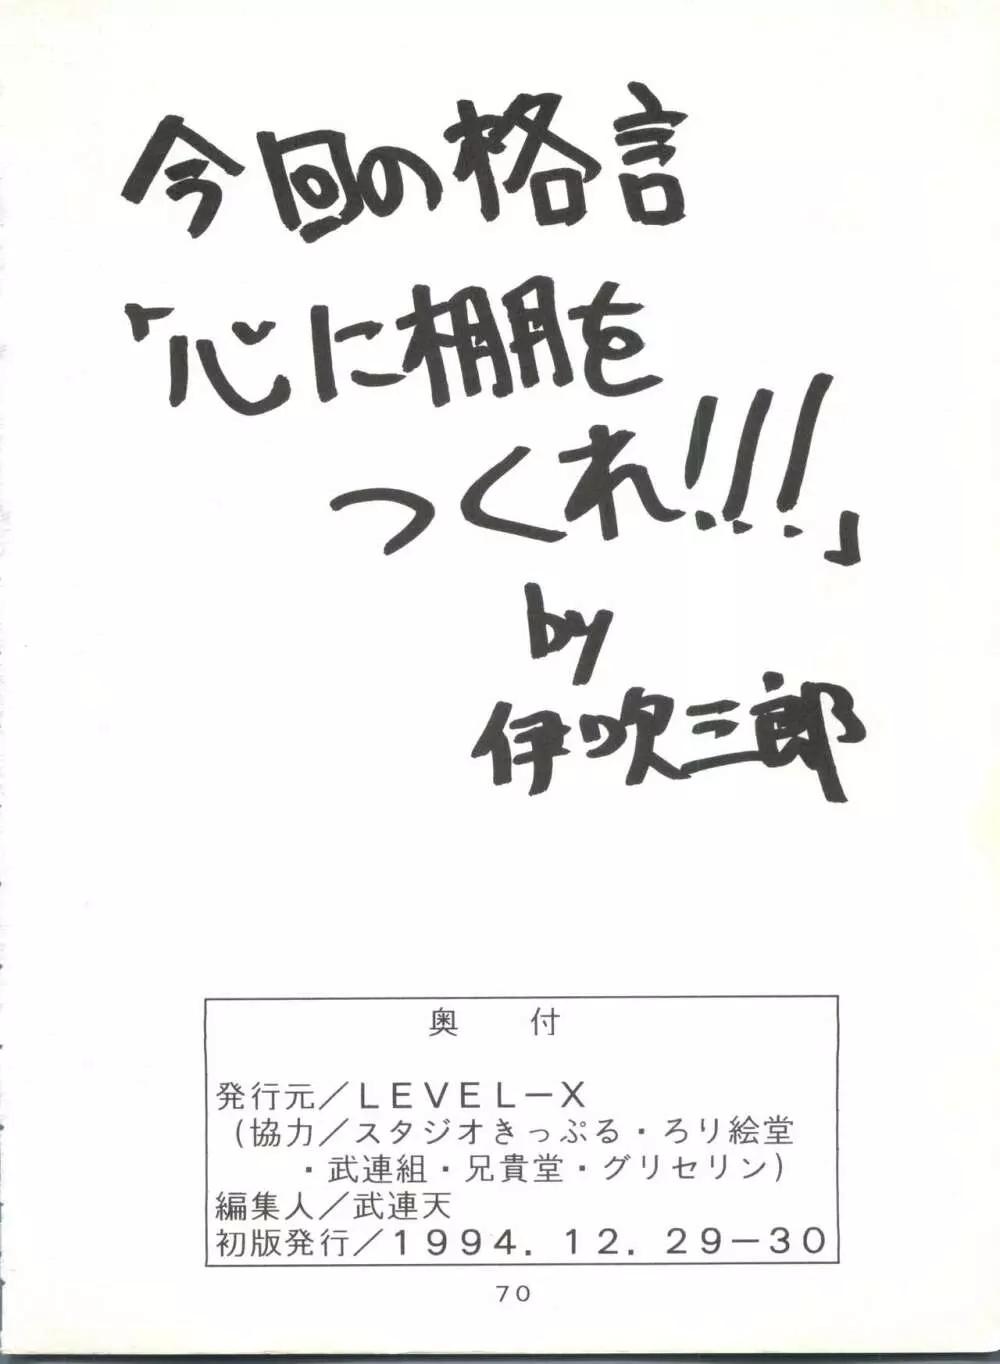 今回の格言
「心に棚を
つくれ!!!」
by
伊吹三郎
奥　付
発行元／LEVEL−X
(協力／スタジオきっぷる・ろり絵堂
・武連組・兄貴堂・グリセリン)
編集人／武連天
初版発行／1994．12．29−30
70